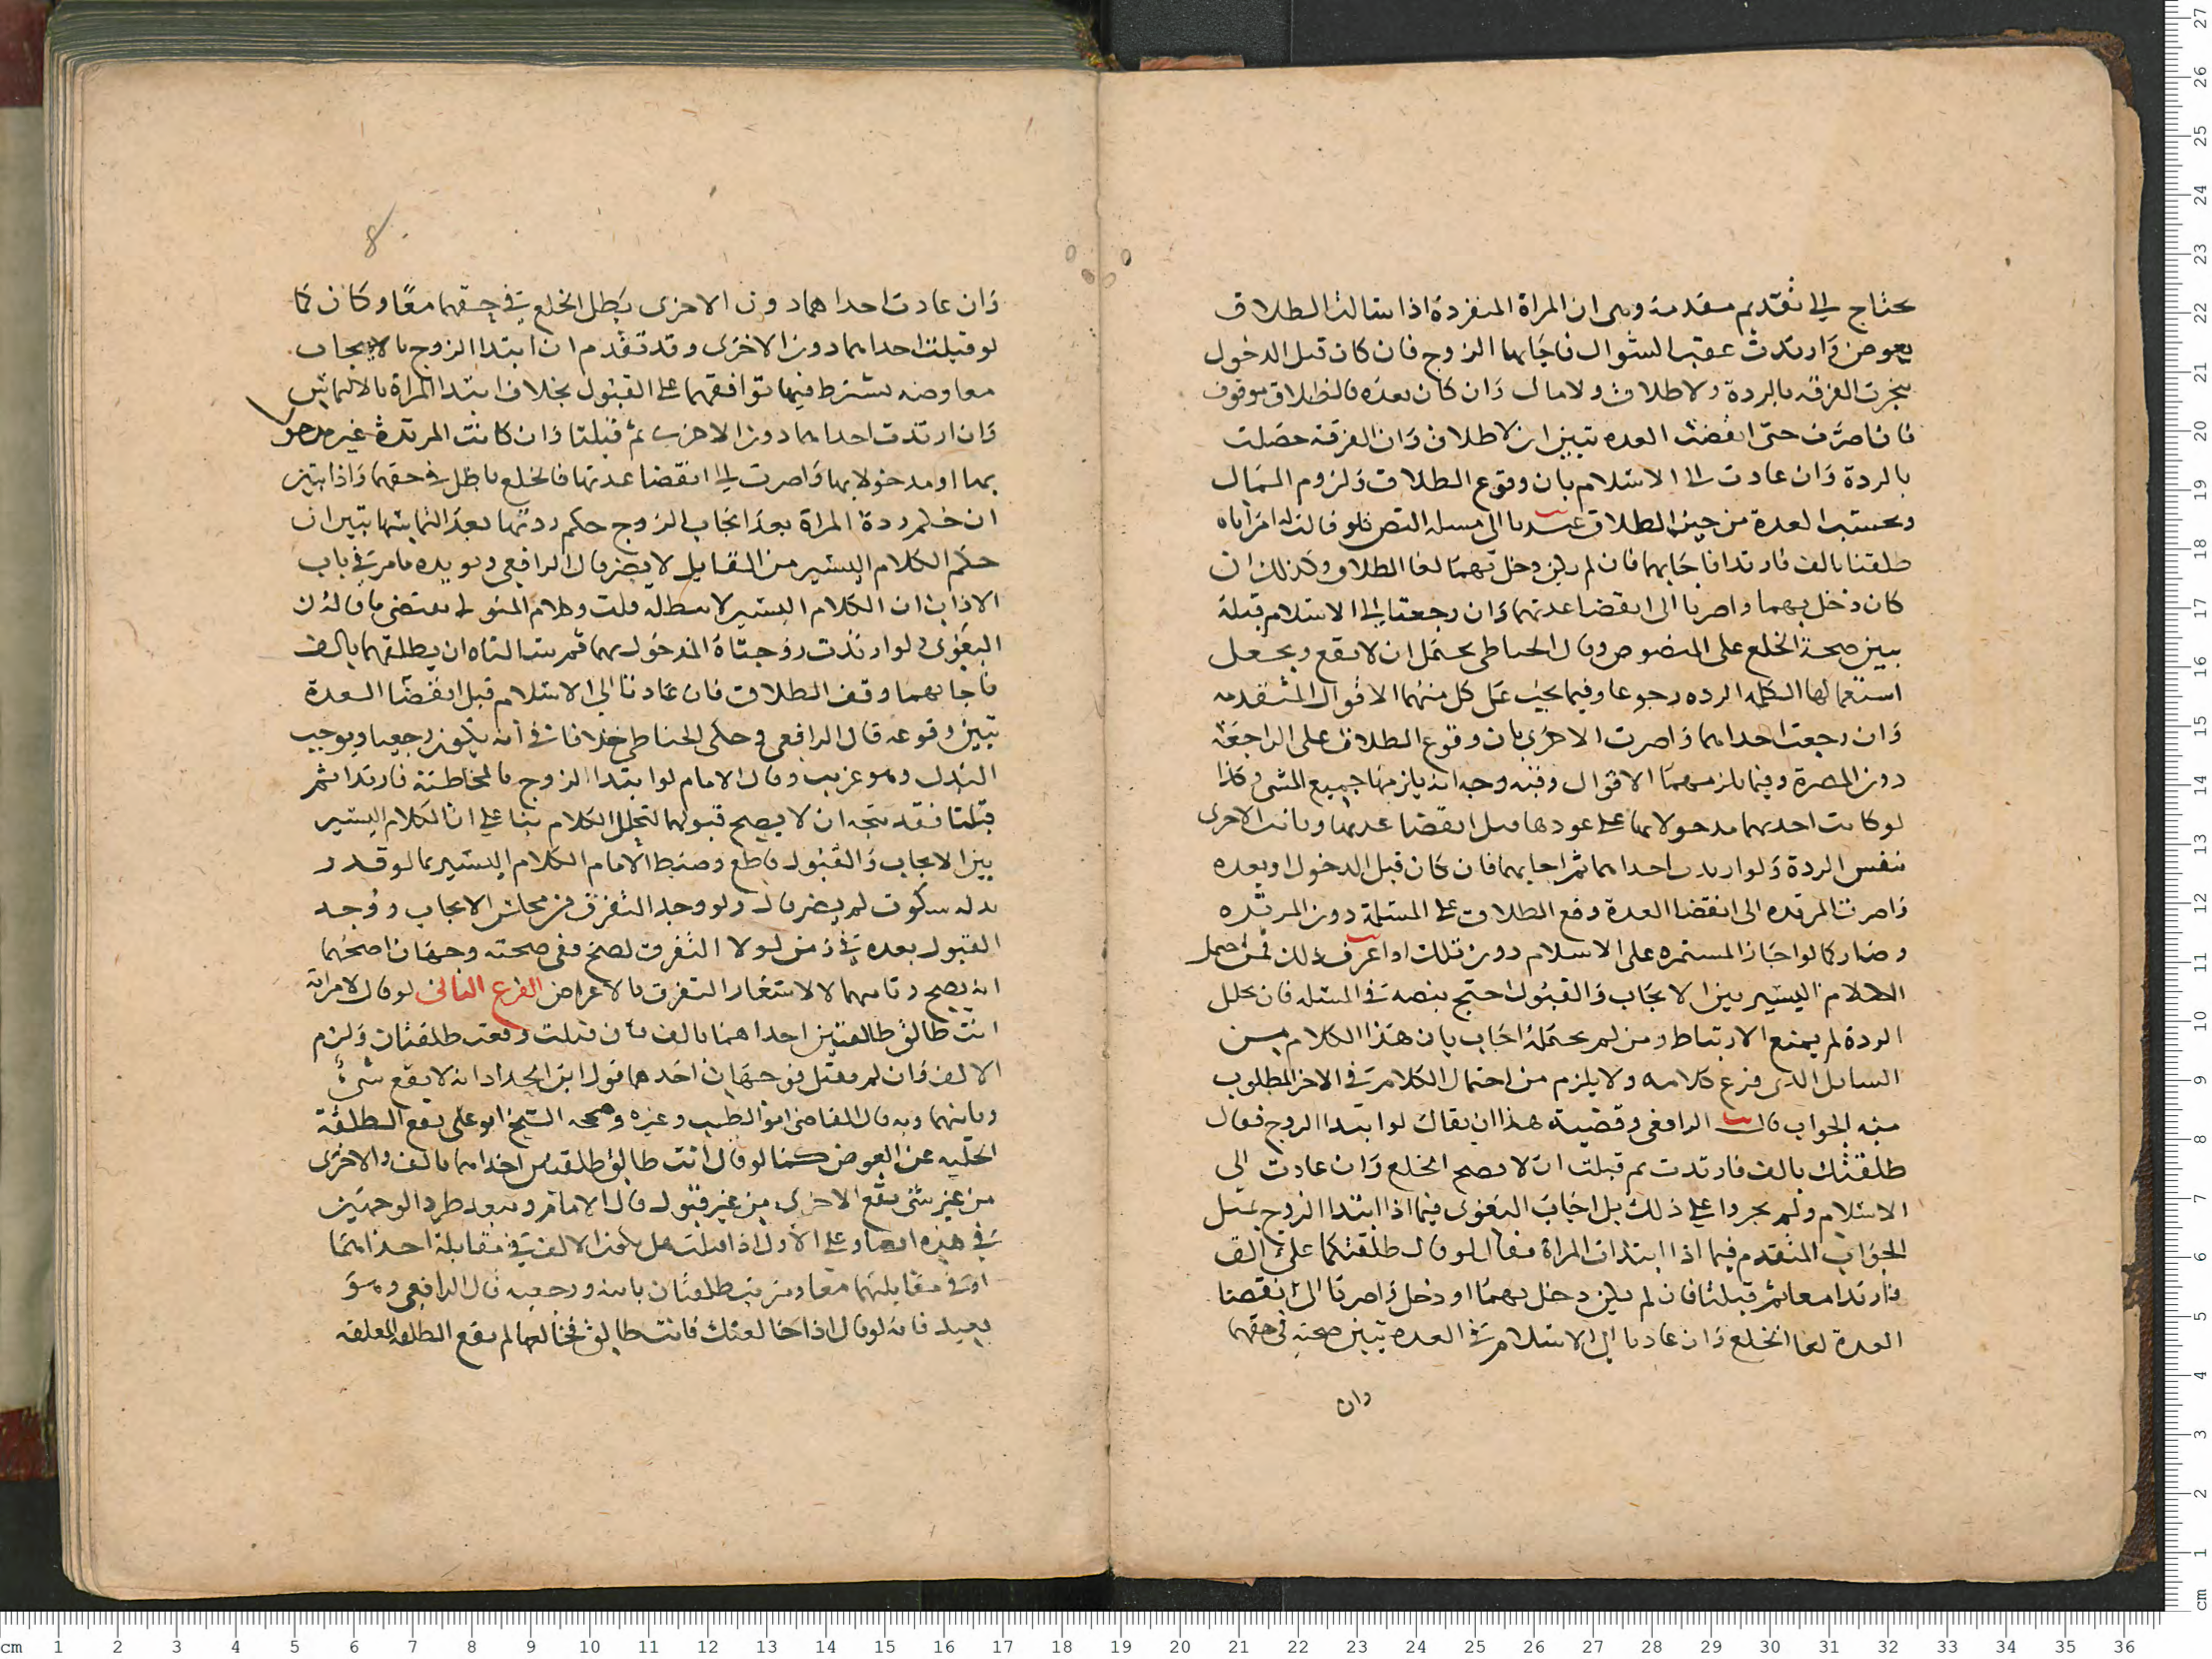 يحتاج الى تقديم مقدمة وهى ان المراة المنفردة اذا سالت الطلاق
بعوض وارتدت عقب السوال فاجابها الزوج فان كان قبل الدخول
تنجزت الفرقة بالردة ولا طلاق ولا مال وان كان بعده فالطلاق موقوف
فان اصرت حتى انقضت العدة تبين ان لا طلاق وان الفرقة حصلت
بالردة وان عادت الى الاسلام بان وقوع الطلاق ولزوم المال
وتحسب العدة من حين الطلاق عدنا الى مسلة النص فلو قالت له امراتاه
طلقنا بالف فارتدتا فاجابهما فان لم يكن دخل بهما لغا الطلاق وكذلك ان
كان دخل بهما واصرتا الى انقضا عدتهما وان رجعتا الى الاسلام قبله
تبين صحة الخلع على المنصوص وقال الحناطى يحتمل ان لا يقع ويجعل
استعمالها الكلمة الردة رجوعا وفيما يجب على كل منهما الاقوال المتقدمة
وان رجعت احداهما واصرت الاخرى بان وقوع الطلاق على الراجعة
دون المصرة وفيما يلزمها الاقوال وفيه وجه انه يلزمها جميع المسمى وكذا
لو كانت احديهما مدخولا بها على عودها قبل انقضا عدتها وبانت الاخرى
بنفس الردة ولو ارتدت احداهما ثم اجابهما فان كان قبل الدخول او بعده
واصرت المرتدة الى انقضا العدة وقع الطلاق على المسلمة دون المرتدة
وصار كما لو اجاز المستمرة على الاسلام دون تلك اذا عرف ذلك فمن احتمل
الكلام اليسير بين الايجاب والقبول احتج بنصه فى المسئلة فان تخلل
الردة لم يمنع الارتباط ومن لم يحتمله اجاب بان هذا الكلام من
السايل الذى فرع كلامه ولا يلزم من احتمال الكلام فى الاخر المطلوب
منه الجواب قال الرافعى وقضية هذا ان يقال لو ابتدا الزوج فقال
طلقتك بالف فارتدت ثم قبلت ان لا يصح الخلع وان عادت الى
الاسلام ولم يجروا على ذلك بل اجاب البغوى فيما اذا ابتدا الزوج بمثل
الجواب المتقدم فيما اذا ابتدات المراة فقال لو قال طلقتكما على الف
فارتدتا معا ثم قبلتا فان لم يكن دخل بهما او دخل واصرتا الى انقضا
العدة لغا الخلع وان عادتا الى الاسلام فى العدة تبين صحته فى حقهما
وان
8
وان عادت احداهما دون الاخرى بطل الخلع فى حقهما معا وكان كما
لو قبلت احداهما دون الاخرى وقد تقدم ان ابتدا الزوج بالايجاب
معاوضة يشترط فيها توافقهما على القبول بخلاف ابتدا المراة بالالتماس
وان ارتدت احداهما دون الاخرى ثم قبلتا وان كانت المرتدة غير مدخول
بها او مدخولا بها واصرت الى انقضا عدتها فالخلع باطل فى حقهما واذا تبين
ان حكم ردة المراة بعد ايجاب الزوج حكم ردتها بعد التماسها تبين ان
حكم الكلام اليسير من القايل لا يضر قال الرافعى ويويده ما مر فى باب
الاذان ان الكلام اليسير لا يبطله قلت وكلام المتولى يقتضى ما قاله ان
البغوى ولو ارتدت زوجتاه المدخول بهما ثم سالتاه ان يطلقهما بالف
فاجابهما وقف الطلاق فان عادتا الى الاسلام قبل انقضا العدة
تبين وقوعه قال الرافعى وحكى الحناطى خلافا فى انه يكون رجعيا ويوجب
البدل وهو غريب وقال الامام لو ابتدا الزوج بالمخاطبة فارتدتا ثم
قبلتا فقد يتجه ان لا يصح قبولهما لتخلل الكلام بنا على ان الكلام اليسير
بين الايجاب والقبول قاطع وضبط الامام الكلام اليسير بما لو قدر
بدله سكوت لم يضر قال ولو وجد التفرق من مجلس الايجاب ووجد
القبول بعده فى زمن لولا التفرق لصح ففى صحته وجهان اصحهما
انه يصح وثانيهما لا لاشعار التفرق بالاعراض الفرع الثانى لو قال لامراته
انت طالق طالقتين احداهما بالف فان قبلت وقعت طلقتان ولزم
الالف وان لم تقبل فوجهان احدهما قول ابن الحداد انه لا يقع شىء
وثانيهما وبه قال القاضى ابو الطيب وغيره وصححه الشيخ ابو على تقع الطلقة
الخلية عن العوض كما لو قال انت طالق طلقتين احداهما بالف والاخرى
من غير شى تقع الاخرى من غير قبول قال الامام ويبعد طرد الوجهين
فى هذه ايضا وعلى الاول اذا قبلت هل يكون الالف فى مقابلة احداهما
او فى مقابلتهما معا طلقتان باينة ورجعية قال الرافعى وهو
بعيد فانه لو قال اذا خالعتك فانت طالق فخالعها لم تقع الطلقة المعلقة